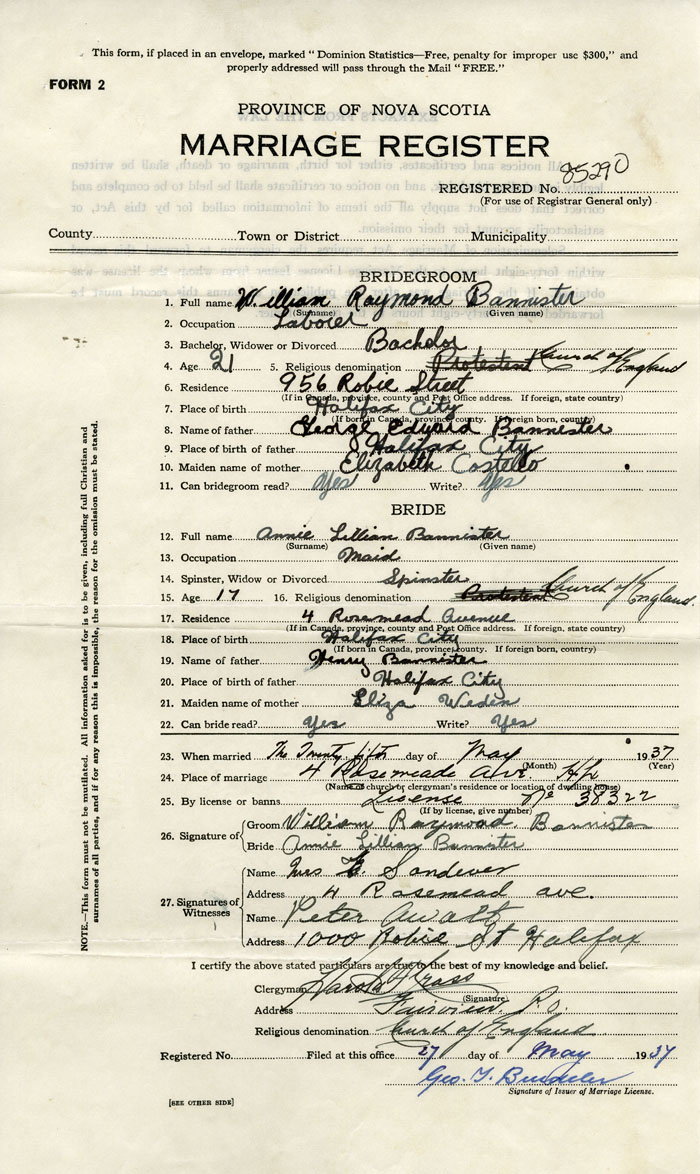 This form, if placed in an envelope, marked "Dominion Statistics—Free, penalty for improper use $300," and
properly addressed will pass through the Mail "FREE."
FORM 2
PROVINCE OF NOVA SCOTIA
MARRIAGE REGISTER
REGISTERED No. 85290
(For use of Registrar General only)
County Town or District Municipality
BRIDEGROOM
1. Full name William Raymond Bannister
(Surname) (Given name)
2. Occupation Laborer
3. Bachelor, Widower or Divorced Bachelor
4. Age 21 5. Religious denomination Protestant Church of England
6. Residence 956 Robie Street
(If in Canada, province, county and Post Office address. If foreign, state country)
7. Place of birth Halifax City
(If born in Canada, province, county. If foreign born, county)
8. Name of father George Edward Bannister
9. Place of birth of father Halifax City
10. Maiden name of mother Elizabeth Costello
11. Can bridegroom read? Yes Write? Yes
BRIDE
12. Full name Annie Lillian Bannister
(Surname) (Given name)
13. Occupation Maid
14. Spinster, Widow or Divorced Spinster
15. Age 17 16. Religious denomination Protestant Church of England.
17. Residence 4 Rosemead Avenue
(If in Canada, province, county and Post Office address. If foreign, state country)
18. Place of birth Halifax City
(If born in Canada, province, county. If foreign born, county)
19. Name of father Henry Bannister
20. Place of birth of father Halifax City
21. Maiden name of mother Eliza Weden
22. Can bride read? Yes Write? Yes
23. When married The Twenty fifth day of May 1937
(Month) (Year)
24. Place of marriage 4 Rosemeade Ave. Hfx
(Name of church or clergyman's residence or location of dwelling house)
25. By license or banns License No 38322
(If by license, give number)
26. Signature of Groom William Raymond Bannister
Bride Annie Lillian Bannister
27. Signatures of Witnesses
Name Mrs E. Sandever
Address 4 Rosemead ave.
Name Peter Awalt
Address 1000 Robie St Halifax
I certify the above stated particulars are true to the best of my knowledge and belief.
Clergyman Harold
(Signature)
Address Fairview P.O.
Religious denomination Church of England
Registered No. Filed at this office 27 day of May 1937
Geo. T.
Signature of Issuer of Marriage License.
[SEE OTHER SIDE]
NOTE.—This form must not be mutilated. All information asked for is to be given, including full Christian and
surnames of all parties, and if for any reason this is impossible, the reason for the omission must be stated.